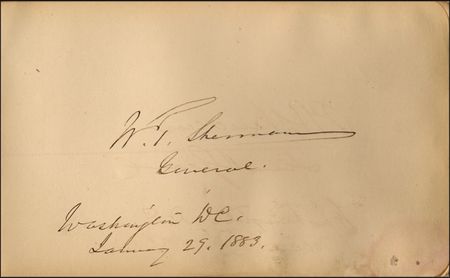 W. T. Sherman
General.
Washington DC.
January 29, 1883.